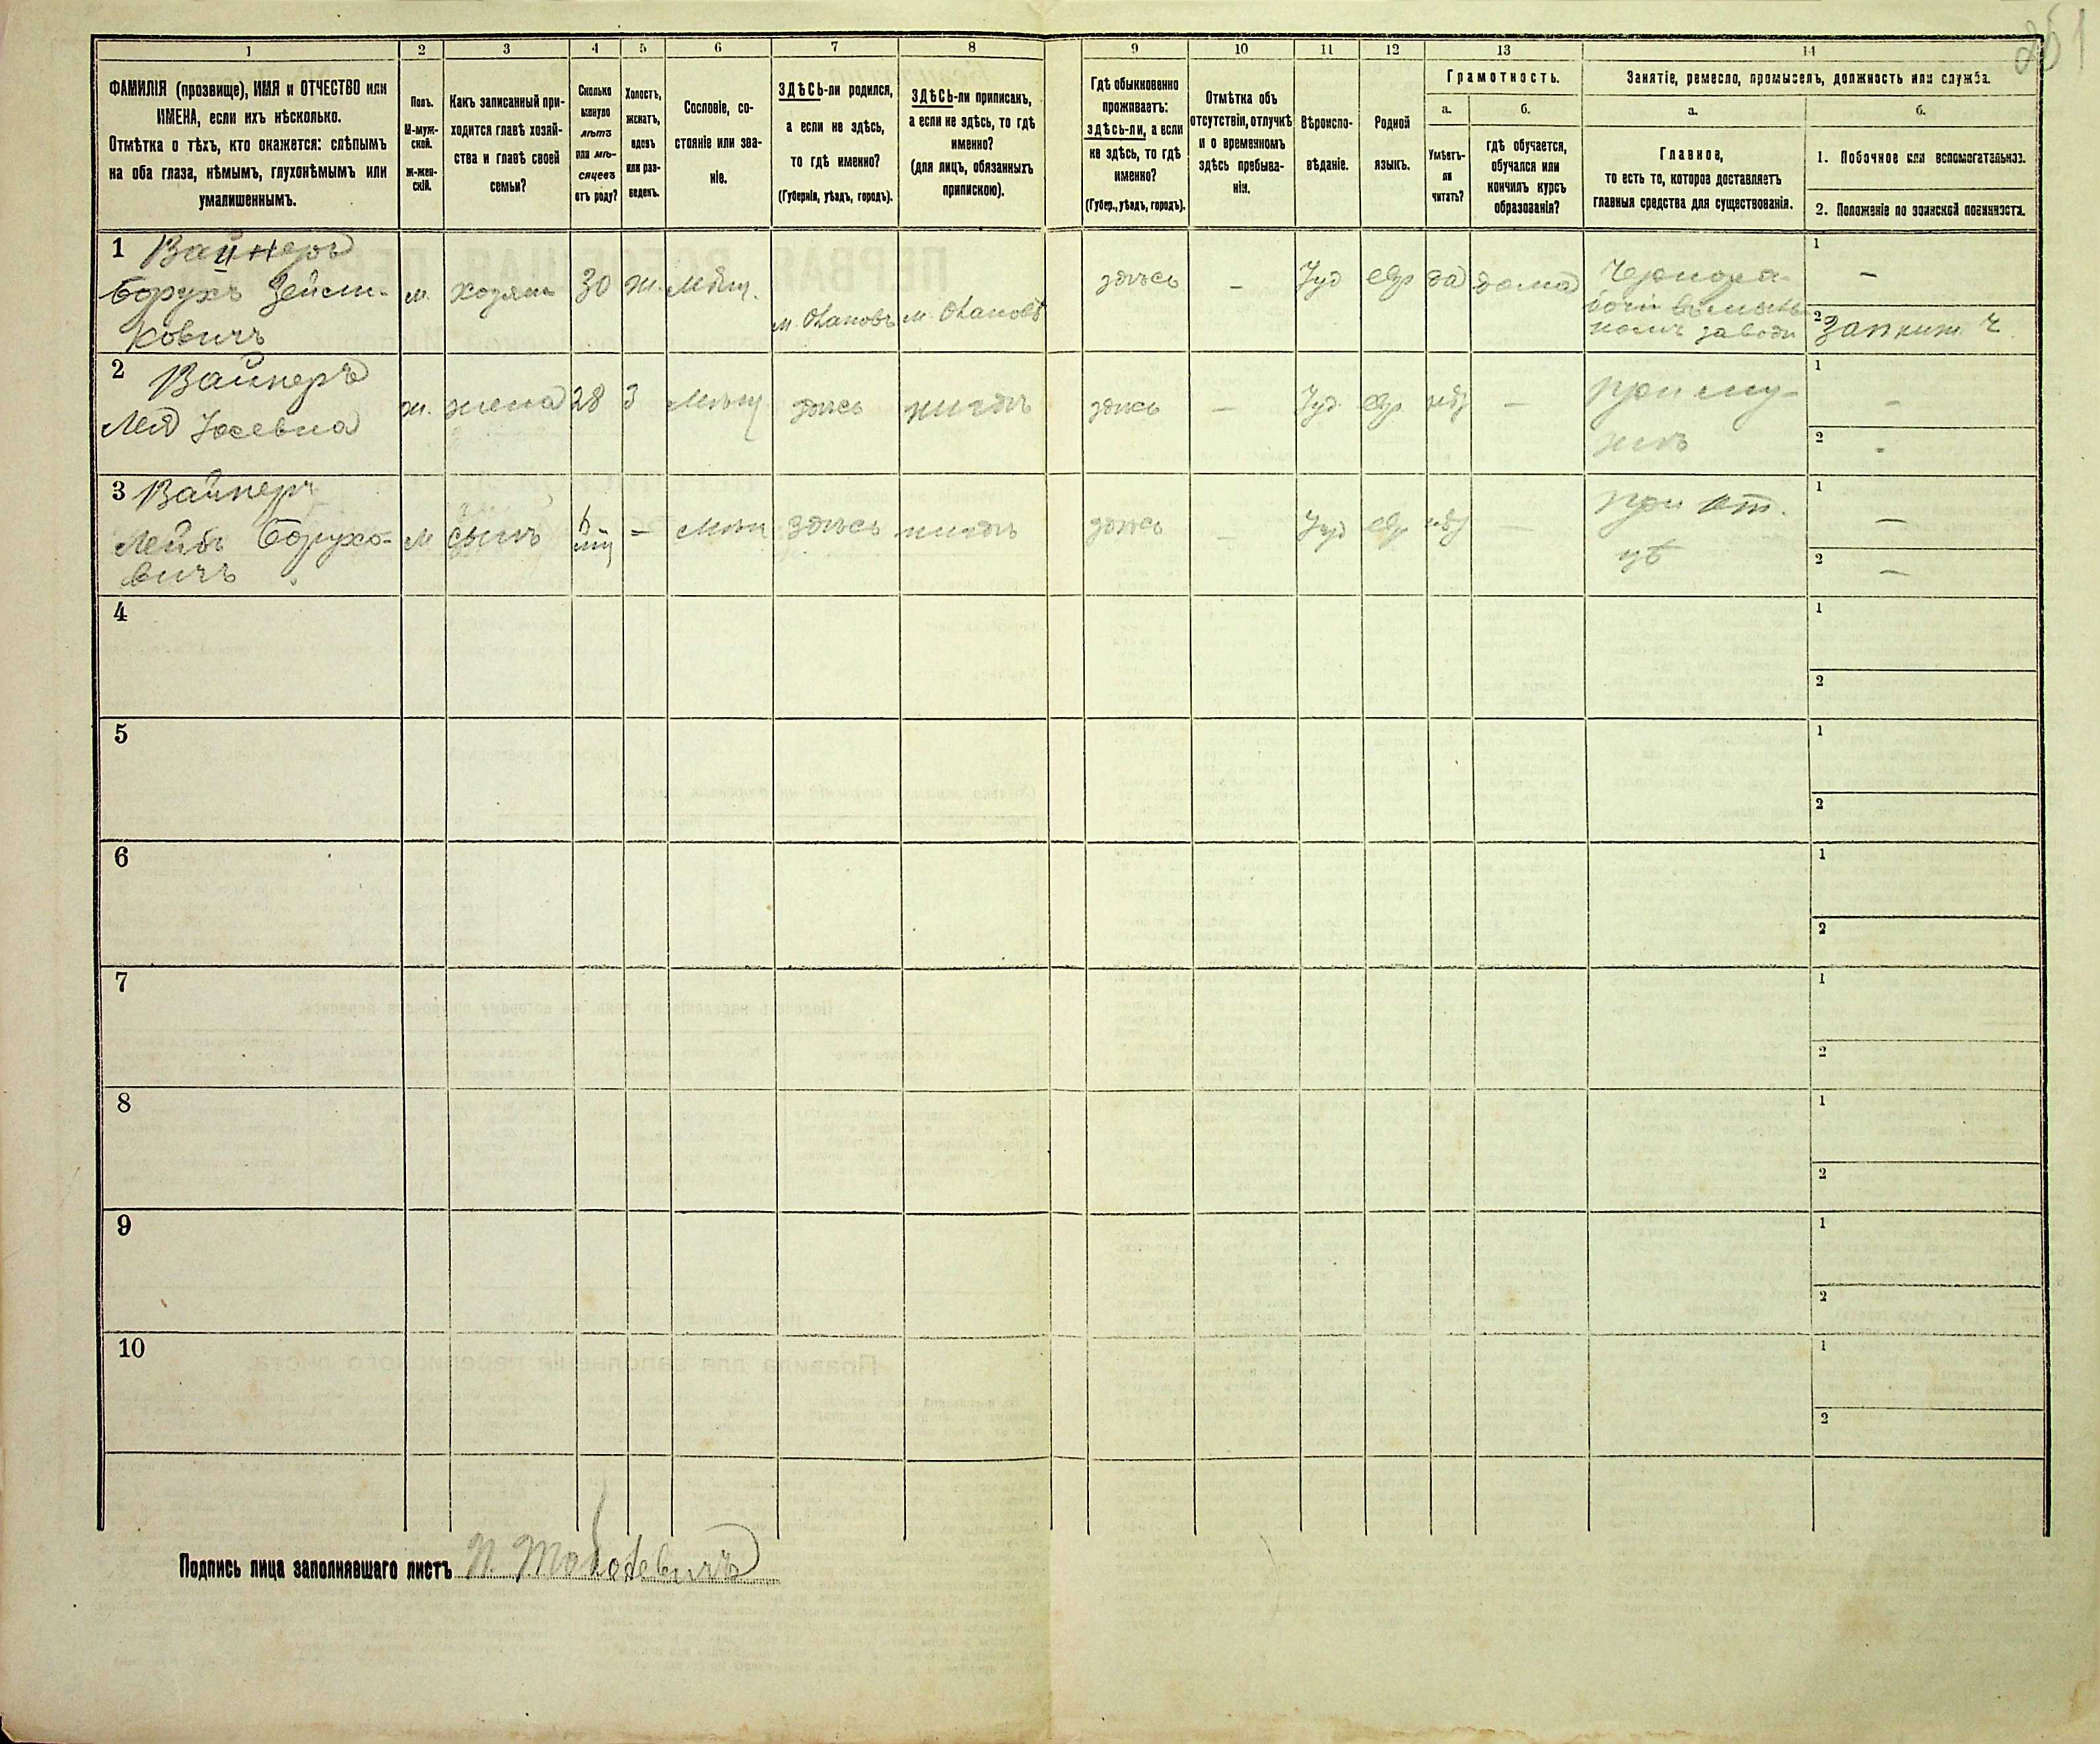 261
1
2
3
4
5
6
7
8
9
10
11
12
13
14
ФАМИЛІЯ (прозвище), ИМЯ и ОТЧЕСТВО или
ИМЕНА, если ихъ нѣсколько.
Отмѣтка о тѣхъ, кто окажется: слѣпымъ
на оба глаза, нѣмымъ, глухонѣмымъ или
умалишеннымъ.
Полъ.
М-муж-
ской.
Ж-жен-
скій.
Какъ записанный при-
ходится главѣ хозяй-
ства и главѣ своей
семьи?
Сколько
минуло
лѣтъ
или мѣ-
сяцевъ
отъ роду?
Холостъ,
женатъ,
вдовъ
или раз-
веденъ.
Сословіе, со-
стояніе или зва-
ніе.
ЗДѢСЬ-ли родился,
а если не здѣсь,
то гдѣ именно?
(Губернія, уѣздъ, городъ).
ЗДѢСЬ-ли приписанъ,
а если не здѣсь, то гдѣ
именно?
(для лицъ, обязанныхъ
припискою).
Гдѣ обыкновенно
проживаетъ:
здѣсь-ли, а если
не здѣсь, то гдѣ
именно?
(Губер., уѣздъ, городъ).
Отмѣтка объ
отсутствіи, отлучкѣ
и о временномъ
здѣсь пребыва-
ніи.
Вѣроиспо-
вѣданіе.
Родной
языкъ.
Грамотность.
а.
б.
Умѣетъ-
ли
читать?
гдѣ обучается,
обучался или
кончилъ курсъ
образованія?
Занятіе, ремесло, промыселъ, должность или служба.
а.
б.
Главное,
то есть то, которое доставляетъ
главныя средства для существованія.
1. Побочное или вспомогательное.
2. Положеніе по воинской повинности.
1 Вайнеръ
Борухъ Зейсли-
ковичъ
м.
хозяинъ
30
ж.
Мѣщ.
здѣсь
–
Іуд
евр
да
дома
1
–
2
2 Вайнеръ
Лея Іосевна
ж.
жена
28
З
Мѣщ
здѣсь
здѣсь
–
Іуд.
евр
–
при му-
жѣ
1
–
2
-
3 Вайнеръ
Лейбъ Борухо-
вичъ
м
сынъ
6
мц
=
Мѣщ
здѣсь
здѣсь
–
Іуд
евр
–
при от-
цѣ
1
–
2
–
4
1
2
5
1
2
6
1
2
7
1
2
8
1
2
9
1
2
10
1
2
Подпись лица заполнявшаго листъ